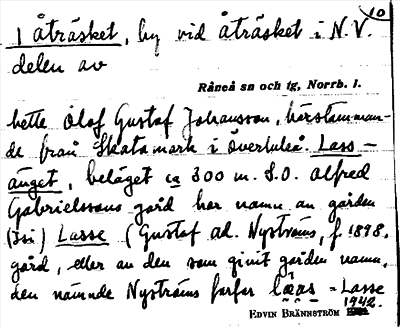 10
1 Åträsket, by vid Åträsket i N.V.
delen av
Råneå sn och tg, Norrb. l.
hette Olof Gustaf Johansson, härstamman-
de från Skatamark i Överluleå. Lass-
änget, beläget ca 300 m. S.O. Alfred
Gabrielssons gård har namn av gården
(Isi) Lasse (Gustaf Ad. Nyströms, f. 1898,
gård, eller av den som givit gården namn,
den nämnde Nyströms farfar = Lasse
1942.
EDVIN BRÄNNSTRÖM